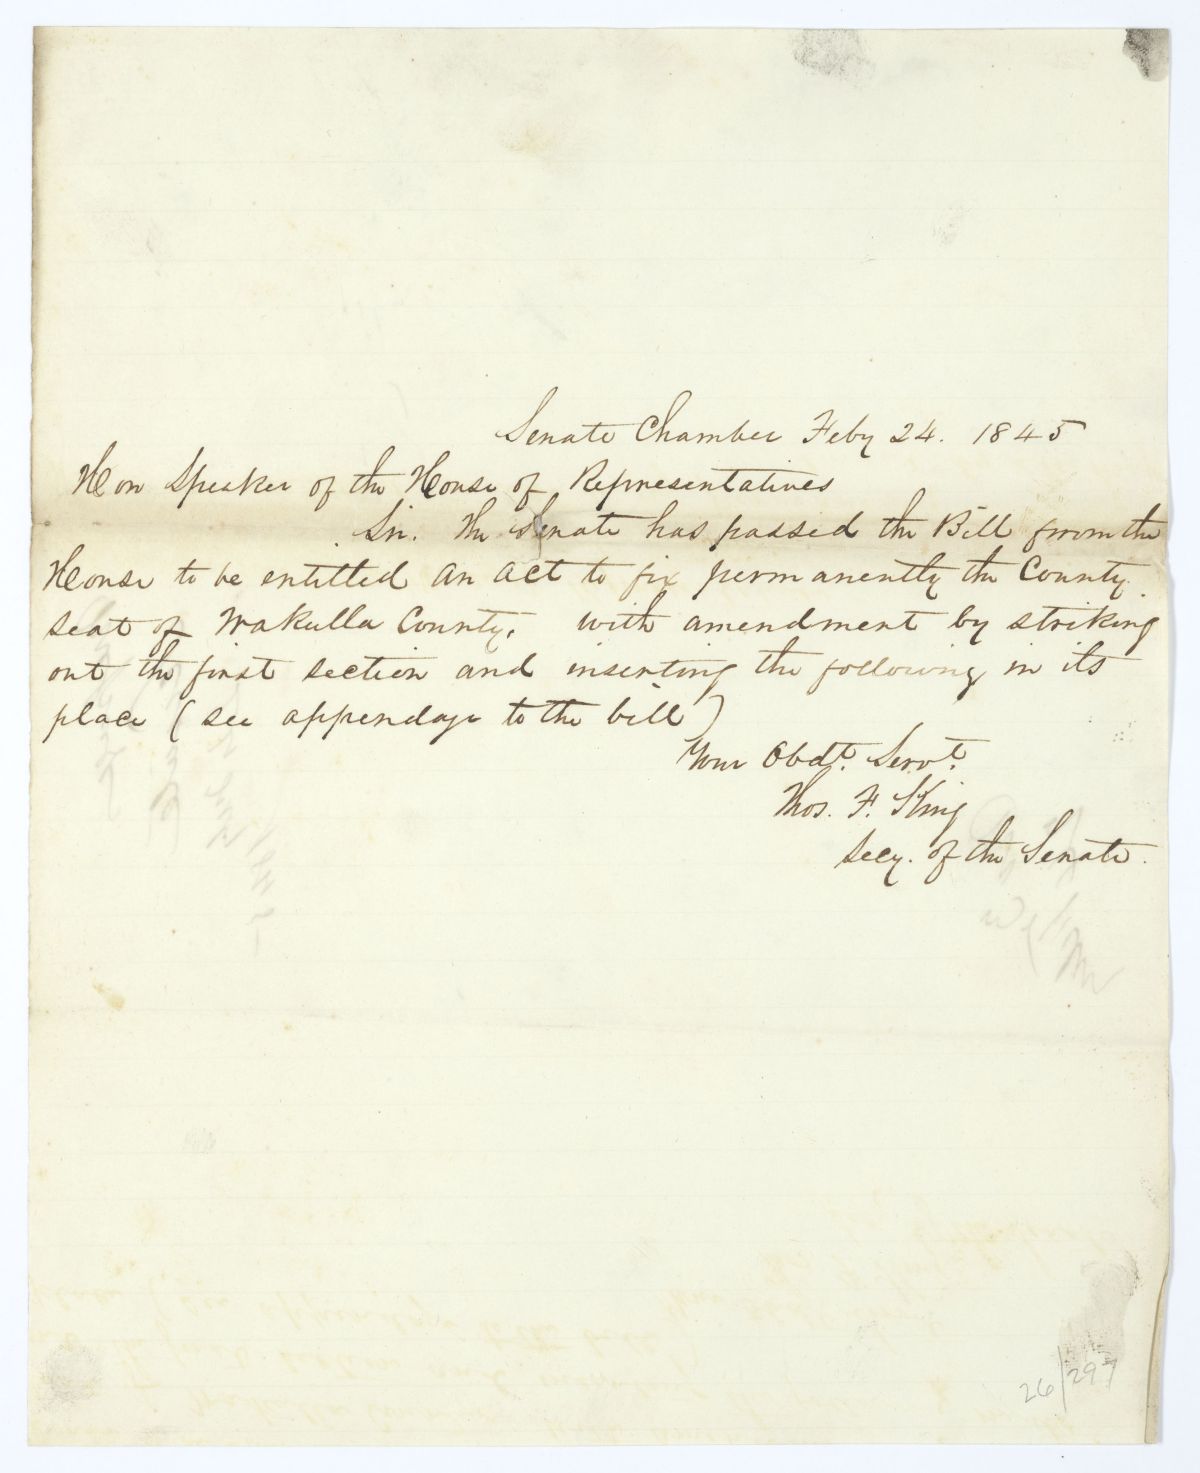 Senate Chamber Feby 24. 1845
Hon Speaker of the House of Representatives
Sir. The Senate has passed the Bill from the
House to be entitled an act to fix permanently the County
seat of Wakulla County, with amendment by striking
out the first section and inserting the following in its
place (see appendage to the bill)
Your Obdt. Servt.
Thos. F. King
Secy. of the Senate.
26/297